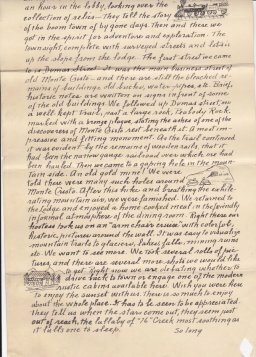 an hour in the lobby, looking over the
collection of relics — They tell the story
of the boom town of by gone days. Then and there we
got in the spirit for adventure and exploration. The
townsight, complete with surveyed streets and lots
up the slope from the lodge. The first street we came
to is Dumas Street it was the main business street of
old Monte Cristo - and there are still the bleached re-
mains of buildings, old ducks, water pipes, etc. Brief,
historic notes are written on signs infront of some
of the old buildings. We followed up Dumas street, on
a well kept trail, past a large rock, Peabody Rock,
marked with a bronze plaque, stating the ashes of one of the
discoverers of Monte Cristo rest beneath it. A most im-
pressive and fitting monument. As the trail continued
it was evident by the remains of wooden rails, that it
had been the narrow gauge railroad over which ore had
been hauled. Then we came to a gaping hole in the moun-
tain side. An old gold mine! We were
told there were many such holes around
Monte Cristo. After this hike and breathing the exhile-
rating mountain air, we were famished. We returned to
the lodge and enjoyed a home cooked meal in the jovially
informal atmosphere of the dining room. Right there our
hostess took us on an "arm chair cruise" with colorful,
historic, pictures around the wall. It was easy to visualize
mountain trails to glaciers, lakes, falls, mining ruins
etc. We want to see more. We took several rolls of pic-
tures, and there are several more shots we would like
to get. Right now we are debating whether to
drive back to town or engage one of the modern
rustic cabins available here. Wish you were here
to enjoy the sunset with us. There is so much to enjoy
about the whole place. It has to be seen to be appreciated.
they tell us when the stars come out, they seem just
out of reach, the lullaby of "76" Creek most soothing as
it lulls one to sleep. So long